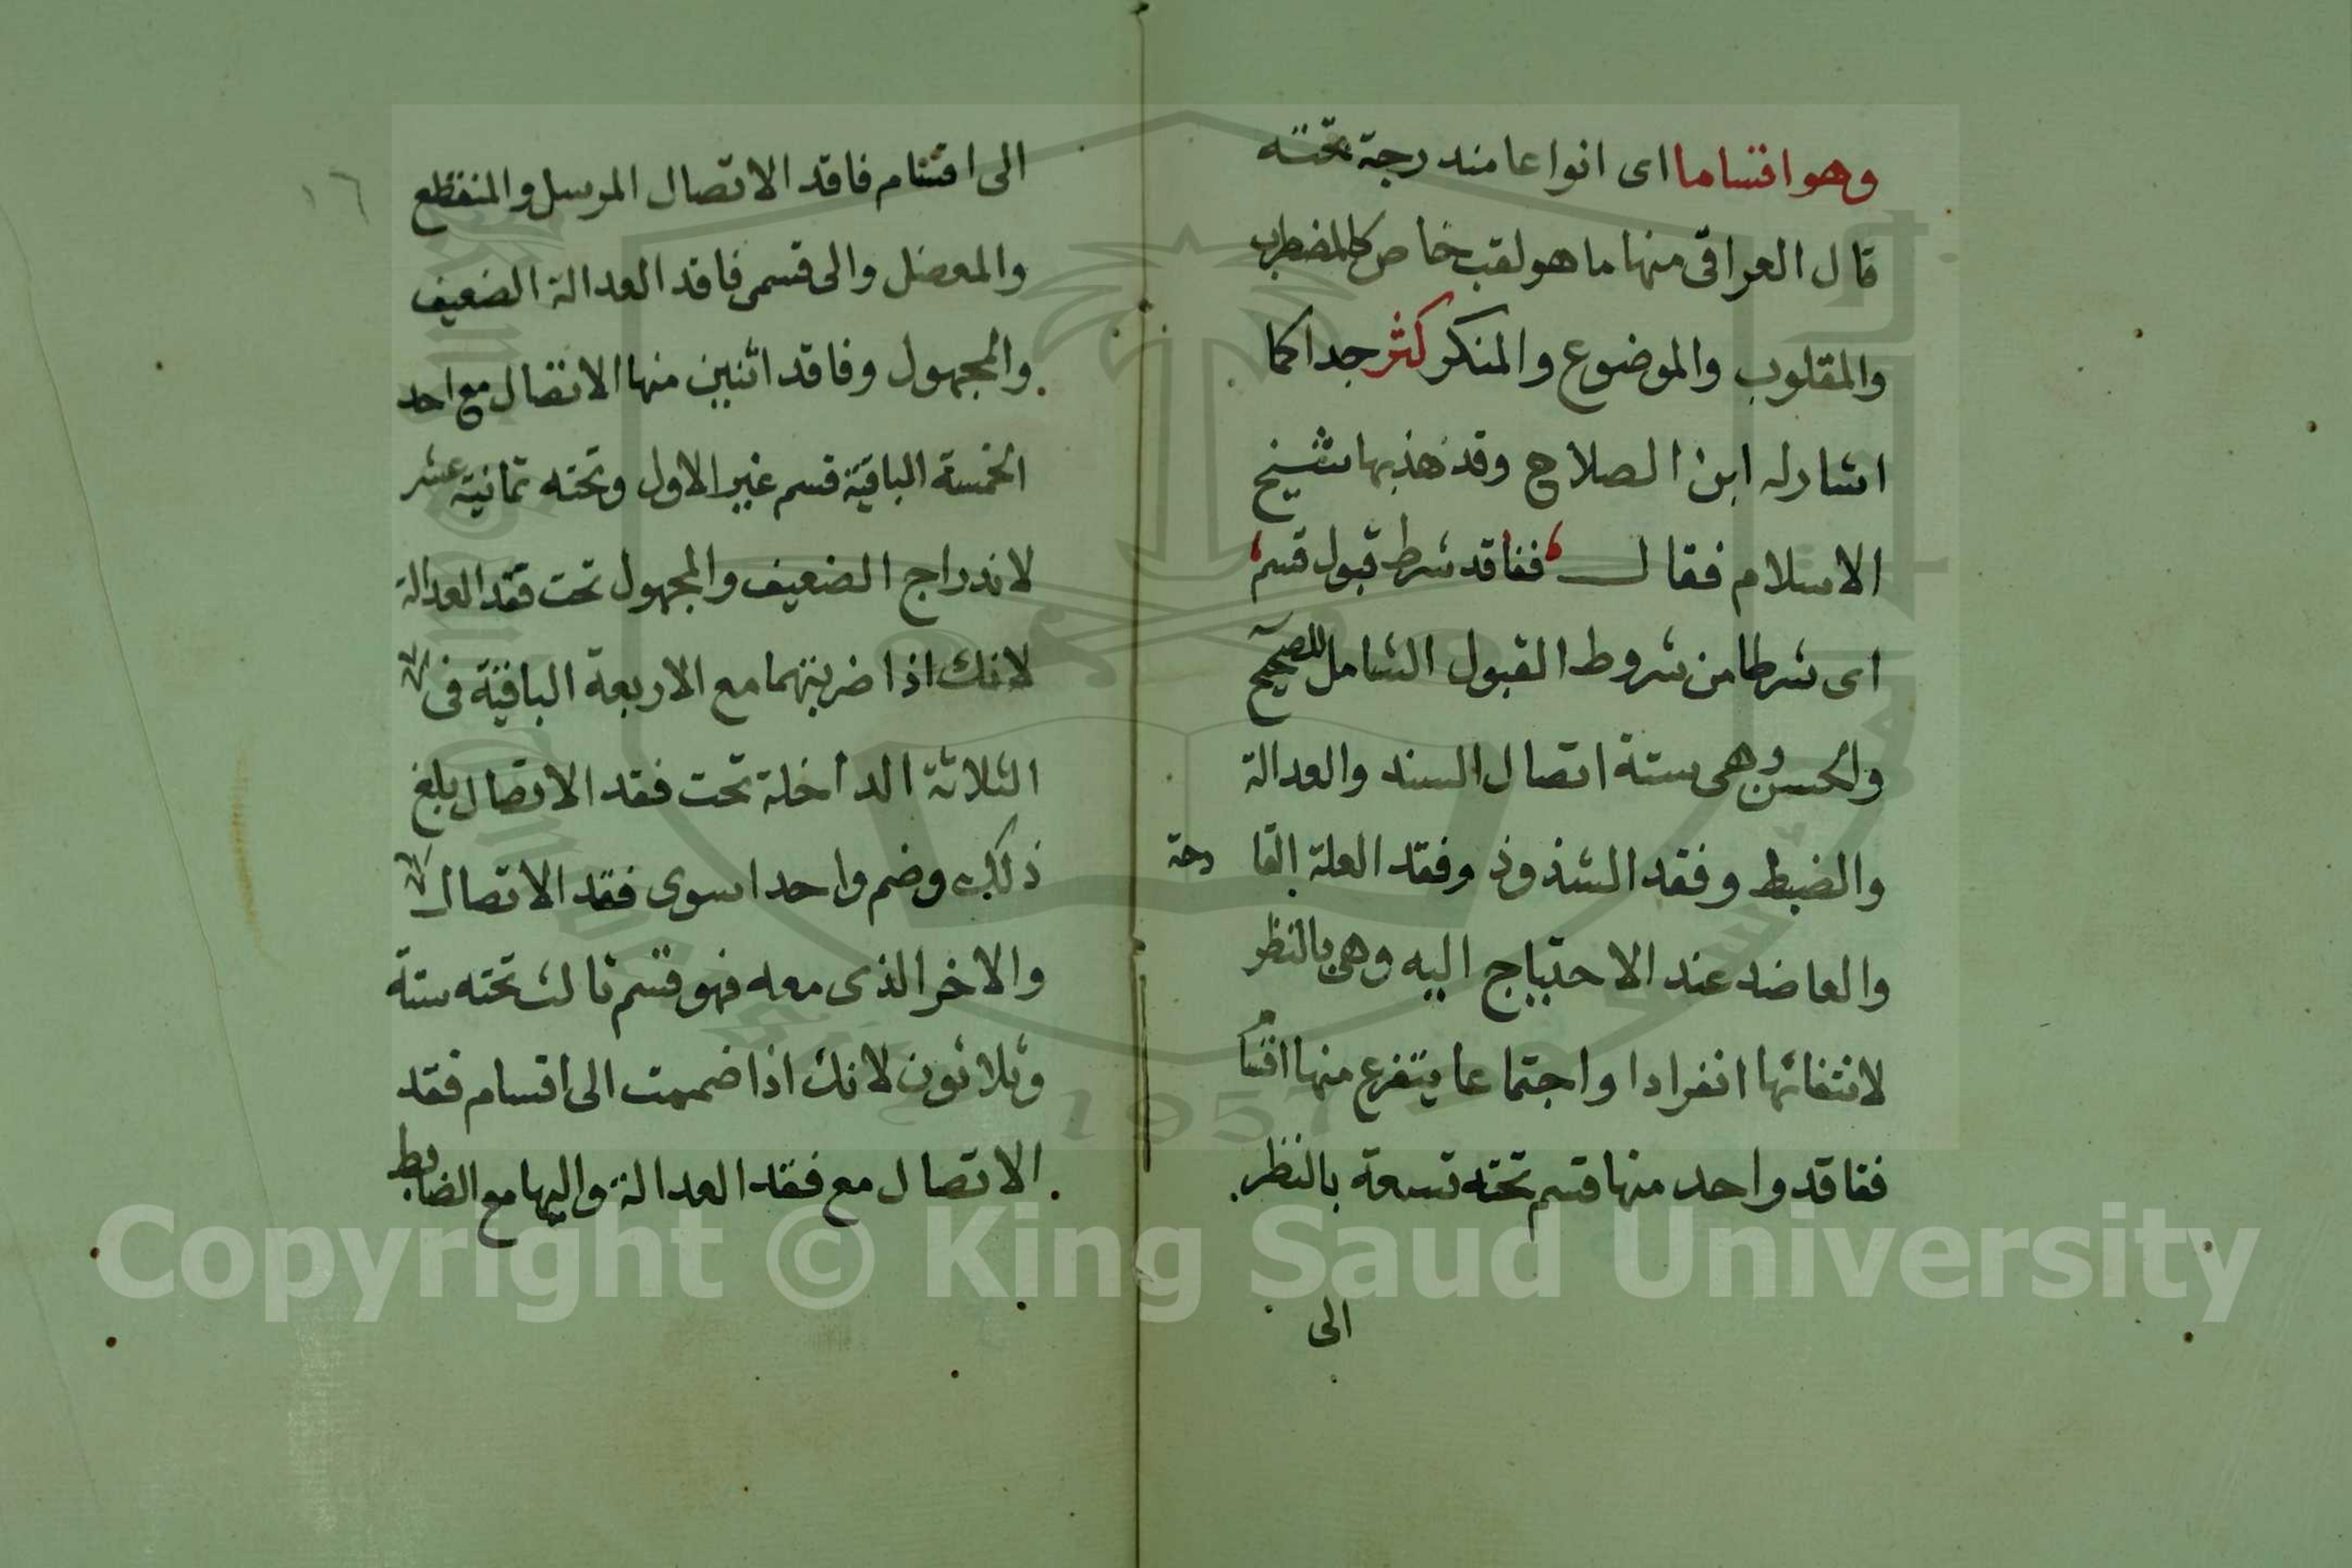 وهو اقساما اى انواعا مندرجة تحته
قال العراقى منها ما هو لقب خاص كالمضطرب
والمقلوب والموضوع والمنكر كثر جدا كما
اشار له ابن الصلاح وقد هذبها شيخ
الاسلام فقال ففاقد شرط قبول قسم
اى شرطا من شروط القبول الشامل للصحيح
والحسن وهى ستة اتصال السند والعدالة
والضبط وفقد الشذوذ وفقد العلة القا دحة
والعاضد عند الاحتياج اليه وهى بالنظر
لانتفائها انفرادا واجتماعا يتفرع منها اقسا
ففاقد واحد منها قسم تحته تسعة بالنظر
الى
١٦
الى اقسام فاقد الاتصال المرسل والمنقطع
والمعضل والى قسمى فاقد العدالة الضعيف
والمجهول وفاقد اثنين منها الاتصال مع احد
الخمسة الباقية قسم غير الاول وتحته ثمانية عشر
لاندراج الضعيف والمجهول تحت فقد العدالة
لانك اذا ضربتهما مع الاربعة الباقية فى
الثلاثة الداخلة تحت فقد الاتصال بلغ
ذلك وضم واحدا سوى فقد الاتصال
والاخر الذى معه فهو قسم ثالث تحته ستة
وثلاثون لانك اذا ضممت الى اقسام فقد
الاتصال مع فقد العدالة واليها مع الضابط
Copyright © King Saud University
1957